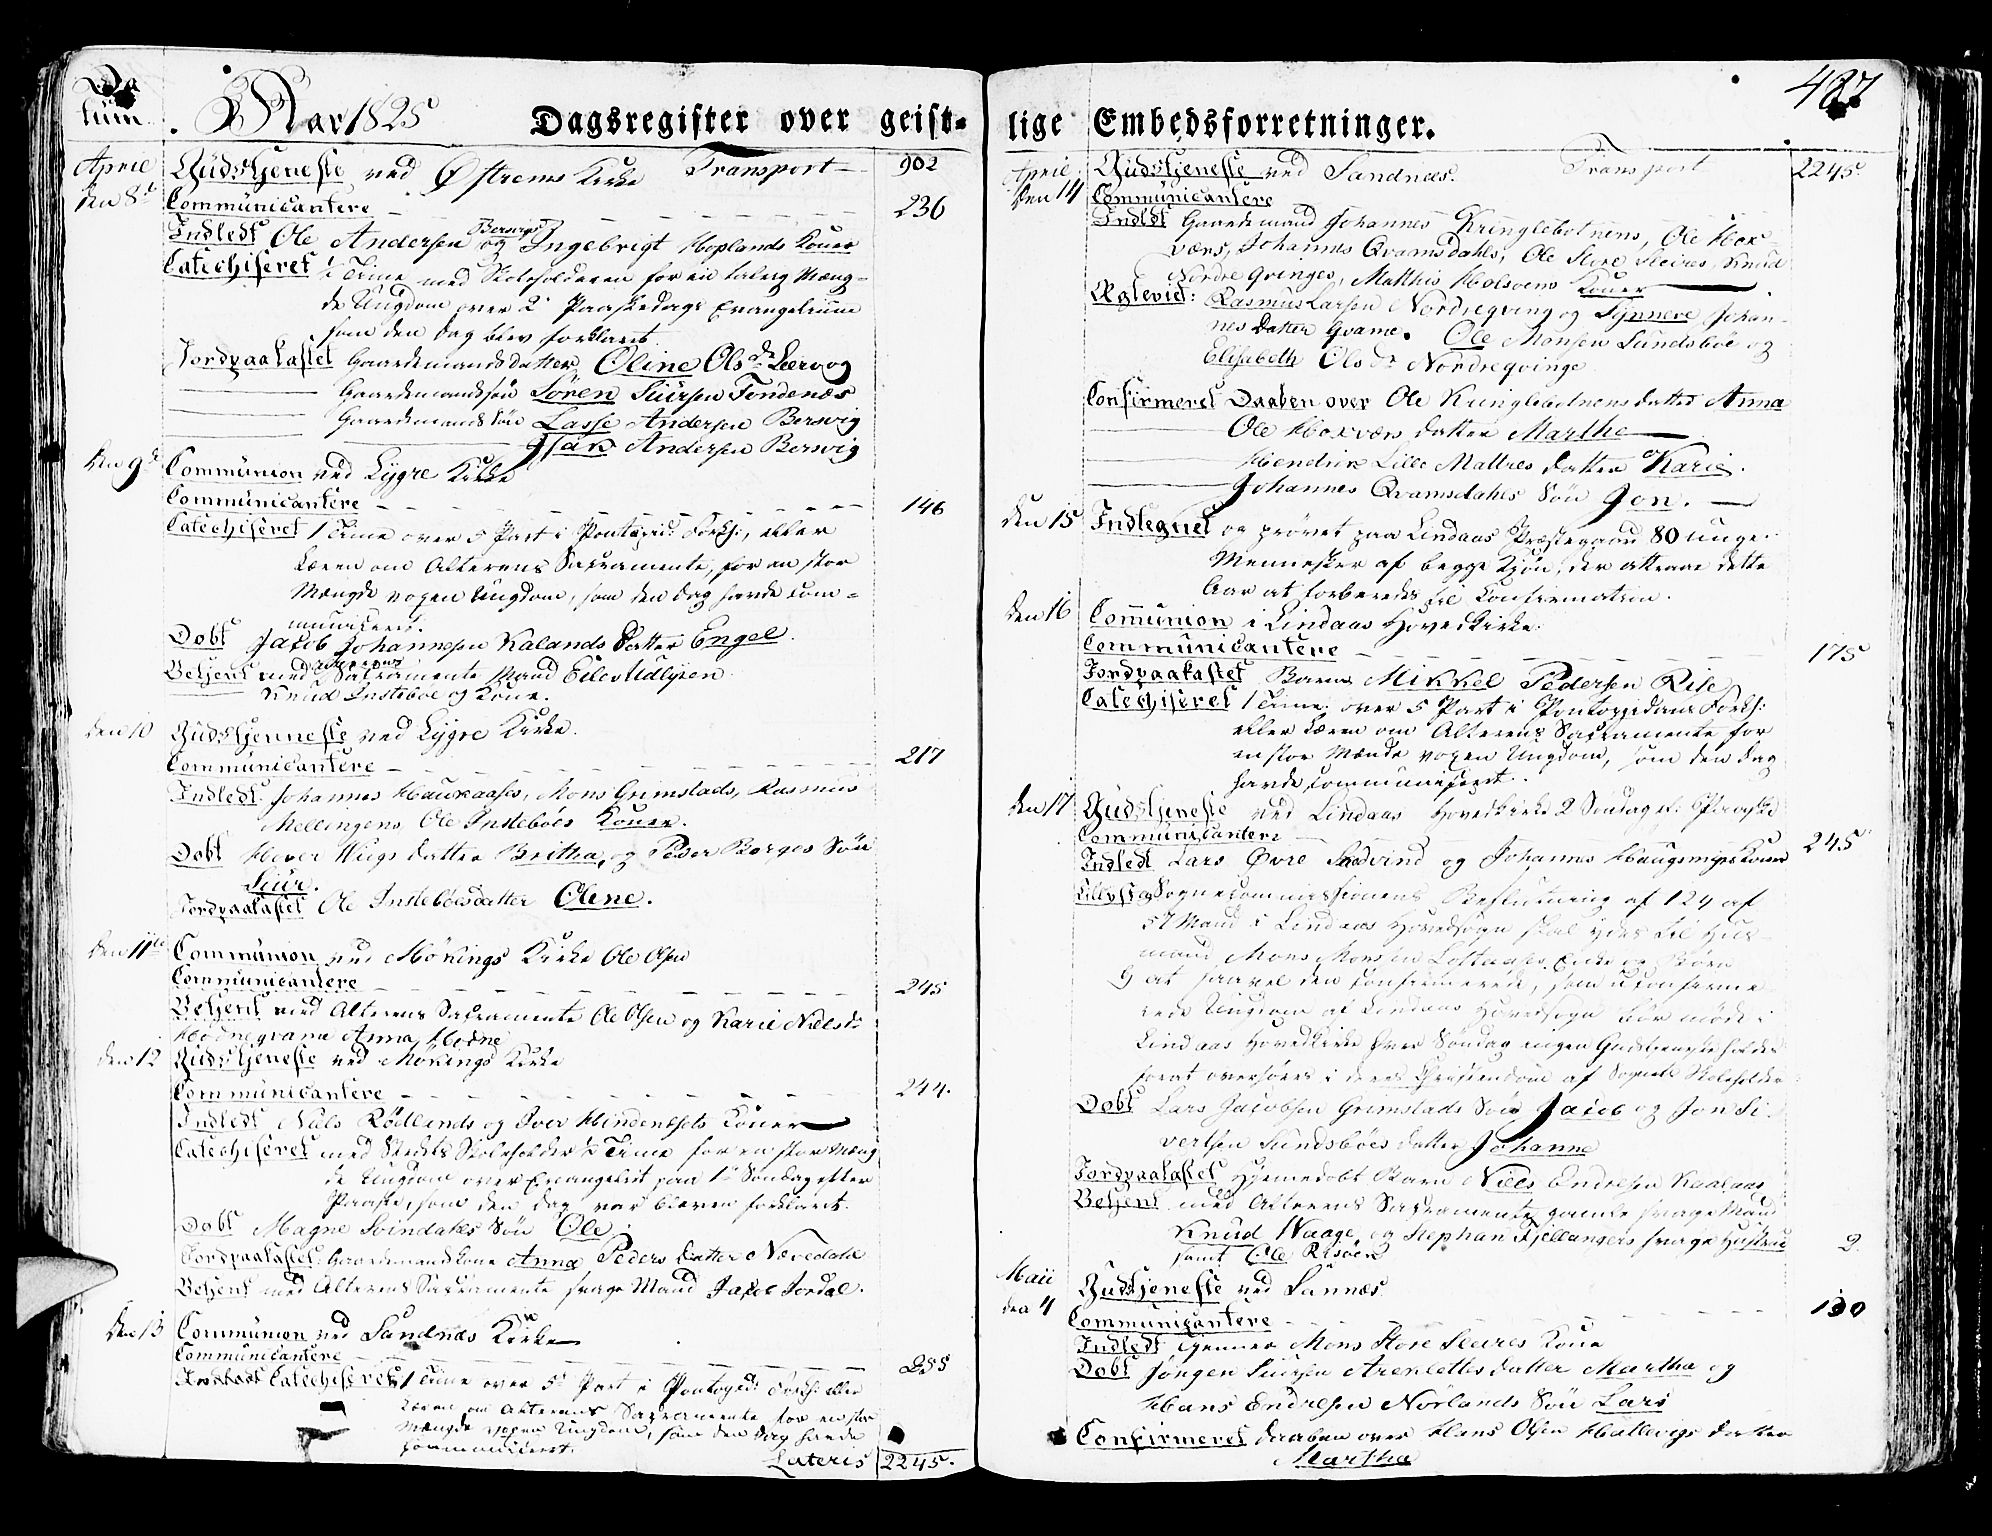 Da
tum.
Aar 1825
Dagsregister over geist-
April
den 8de
Gudstjeneste ved Østrems Kirke Transport 902
Communicantere 236
Indledt Ole Andersen Bersvigs og Ingebrigt Hoplands Koner
Catechiseret 1 Time med Skoleholderen for en talrig Mæng-
de Ungdom over 2 Paaskedags Evangelium
som den dag blev forklaret
Jordpaakastet Gaardemandsdatter Oline Olsdr Leervog
Gaardemandssøn Søren Siursen Fondenæs
Gaardemandssøn Lasse Andersen Bersvig
Isak Andersen Bersvig
den 9de
Communion ved Lygre Kirke
Communicantere 146
Catechiseret 1 Time over 5 Part i Pontopid: Forkl:, eller
Læren om Alterens Sacramente, for en stor
Mængde voxen Ungdom, som den dag havde com-
municeret.
Dobt Jacob Johannesen Kalands Datter Engel.
Betjent med Alterens Sacramente Mand Eilev Udlysen
Knud Insteboe og Kone.
den 10
Gudstjenneste ved Lygre Kirke.
Communicantere 217
Indledt. Johannes Haukaases, Mons Grimstads, Rasmus
Mellingens, Ole Insteboes Koner.
Dobt Hever Wiigs datter Britha, og Peder Borges Søn
Siur.
Jordpaakastet Ole Insteboesdatter Olene.
den 11te
Communion ved Mökings Kirke Ole Olsen
Communicantere 245
Betjent med Alterens Sacramente Ole Olsen og Karie Nielsdr
Hodneqvam Anna Hodne
den 12
Gudstjeneste ved Mökings Kirke
Communicantere 244.
Indledt Niels Rödlands og Iver Hindenesets Koner
Catechiseret med Stedets Skoleholder ½ Time for en stor Mæng
de Ungdom over Evangeliet paa 1te Søndag efter
Paaske, som den dag var bleven forklaret.
Dobt Magne Svindahls Søn Ole.
Jordpaakastet. Gaardemandkone Anna Peders datter Nævedahl
Betjent med Alterens Sacramente svage Mand Jacob Jordal.
den 13
Communion ved Sandnæs Kirke
Communicantere 255
Catechiseret 1 Time over 5te Part i Pontopid: Forkl: eller
Læren om Alterens Sacramente for en stor
Mængde voxen Ungdom, som den dag havde
communiceret.
Lateris 2245.
487
lige Embedsforretninger.
April
den 14
Gudstjeneste ved Sandnæs. Transport 2245.
Communicantere
Indledt Gaardemand Johannes Kringlebotnens, Ole Hox-
værs, Johannes Qvamsdahls, Ole Store Sleires, Knud
Nordre Qvinges, Mathis Holsvens Koner
Ægteviet: Rasmus Larsen Nordreqving og Synneve Johan-
nes datter Qvame. Ole Monsen Sundsboe og
Elisabeth Olsdr Nordreqvinge
Confirmeret Daaben over Ole Kringlebotnens datter Anna
Ole Hoxværs datter Marthe
Hendrik Lille Mattres datter Karie.
Johannes Qvamsdahls Søn Jon.
den 15
Indtegnet og prövet paa Lindaas Præstegaard 80 unge
Mennesker af begge Kjön, der attraae dette
Aar at forberedes til Confirmation.
den 16
Communion i Lindaas Hovedkirke.
Communicantere 175
Jordpaakastet Barn Mikkel Pedersen Rise
Catechiseret 1 Time over 5 Part i Pontoppidans Forkl:
eller Læren om Alterens Sacramente for
en stor Mænde voxen Ungdom, som den dag
havde communiceret.
den 17
Gudstjeneste ved Lindaas Hovedkirke 2 Søndag ef: Paaske
Communicantere 245
Indledt Lars Øvre Sædvind og Johannes Haugsmyrs Koner
Sognecommissionens Beslutning at 124 af
57 Mand i Lindaas Hovedsogn skal ydes til Huus-
mand Mons Monsen Loftaases Enke og Børn
at saavel den Confirmerede, som uconfirme-
rede Ungdom af Lindaas Hovedsogn bør møde i
Lindaas Hovedkirke hver Søndag ingen Gudstjeneste holdes
forat overhøres i deres Christendom af Sognets Skoleholder
Dobt Lars Jacobsen Grimstads Søn Jacob og Jon Si-
vertsen Sundsbøes datter Johanne
Jordpaakastet Hjemedobt Barn Niels Endresen Kaalaas
Betjent med Alterens Sacramente gamle svage Mand
Knud Waage, og Stephan Fjellangers svage Hustrue 2.
samt Ole Risöen
Maii
den 4
Gudstjeneste ved Sannæs
Communicantere 130
Indledt Mons Store Sleires Kone
Dobt Jörgen Siursen Areklettes datter Martha og
Hans Endresen Nörlands Søn Lars
Confirmeret daaben over Hans Olsen Hallevigs datter
Martha